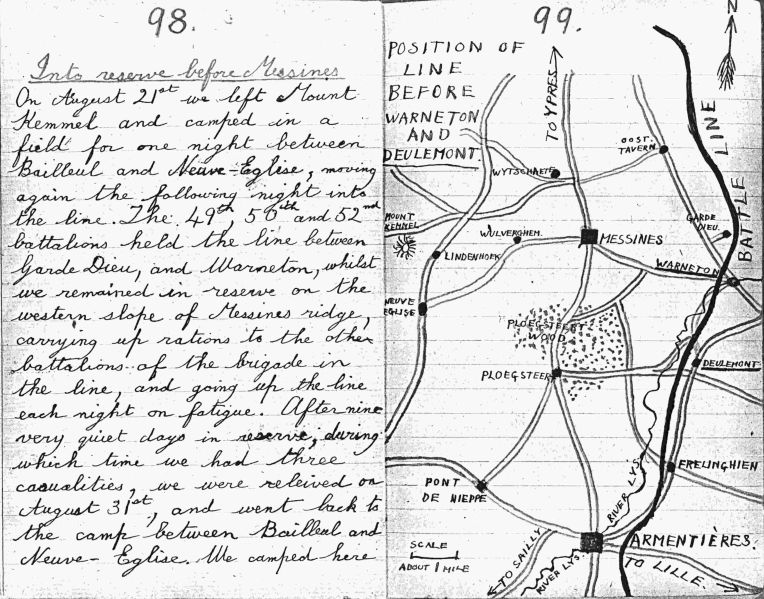 98.
Into reserve before Messines
On August 21st we left Mount
Kemmel and camped in a
field for one night between
Bailleul and Neuve-Eglise, moving
again the following night into
the line. The 49th, 50th and 52nd
battalions held the line between
Garde Dieu, and Warneton, whilst
we remained in reserve on the
western slope of Messines ridge,
carrying up rations to the other
battalions of the brigade in
the line, and going up the line
each night on fatigue. After nine
very quiet days in reserve, during
which time we had three
casualities, we were releived on
August 31st, and went back to
the camp between Bailleul and
Neuve-Eglise. We camped here
99.
POSITION OF
LINE
BEFORE
WARNETON
AND
DEULEMONT.
TO YPRES
N
BATTLE LINE
OOST.
TAVERN.
WYTSCHAETE
MOUNT
KEMMEL
WULVERGHEM.
LINDENHOEK
MESSINES
GARDE
DIEU.
WARNETON
NEUVE
EGLISE
PLOEGSTEERT
WOOD
PLOEGSTEERT
DEULEMONT
PONT
DE NIEPPE
RIVER LYS.
FRELINGHIEN
ARMENTIÈRES.
SCALE
ABOUT 1 MILE
TO SAILLY
RIVER LYS.
TO LILLE.